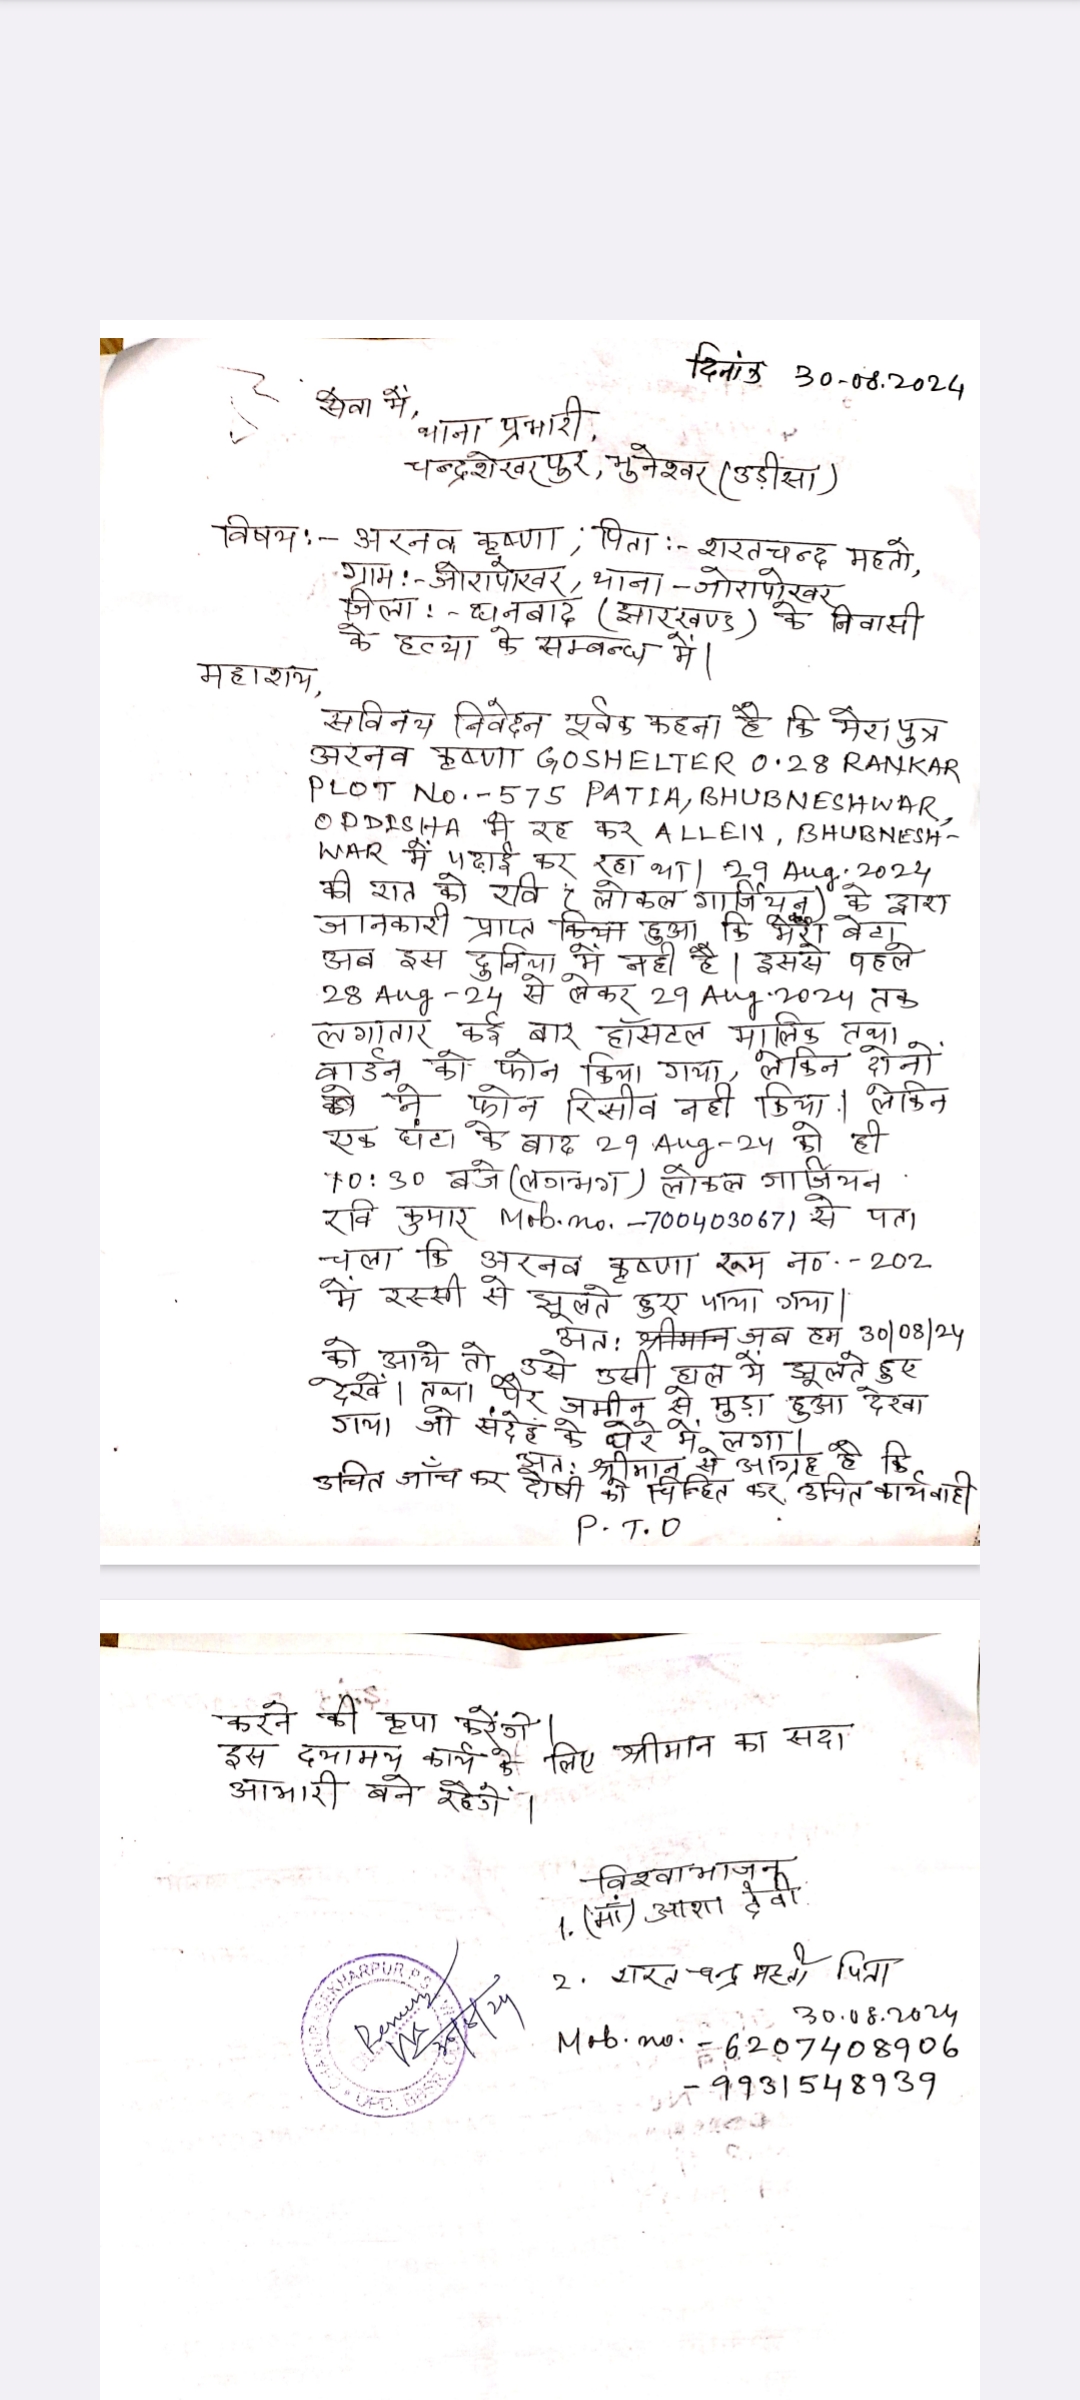 दिनांक 30-08.2024
सेवा में,
थाना प्रभारी,
चन्द्रशेखरपुर, भुनेश्वर (उड़ीसा)
विषय:- अरनव कृष्णा ; पिता :- शरतचन्द महतो,
ग्राम:- जोरापोखर, थाना - जोरापोखर
जिला :- धनबाद (झारखण्ड) के निवासी
के हत्या के सम्बन्ध में|
महाशय,
सविनय निवेदन पूर्वक कहना है कि मेरा पुत्र
अरनव कृष्णा GOSHELTER 0.28 RANKAR
PLOT No.-575 PATIA, BHUBNESHWAR,
ODDISHA में रह कर ALLEN, BHUBNESH-
WAR में पढ़ाई कर रहा था| 29 Aug.2024
की रात को रवि ( लोकल गार्जियन) के द्वारा
जानकारी प्राप्त किया हुआ कि मेरा बेटा
अब इस दुनिया में नही है| इससे पहले
28 Aug-24 से लेकर 29 Aug.2024 तक
लगातार कई बार हॉसटल मालिक तथा
वार्डन को फोन किया गया, लेकिन दोनों
ने फोन रिसीव नही किया.| लेकिन
एक घंटा के बाद 29 Aug-24 को ही
10:30 बजे (लगभग) लोकल गार्जियन
रवि कुमार Mob.no. -7004030671 से पता
चला कि अरनव कृष्णा रूम न०.-202
में रस्सी से झूलते हुए पाया गया|
अत: श्रीमान जब हम 30/08/24
को आये तो उसे उसी हाल में झूलते हुए
देखें| तथा पैर जमीन से मुड़ा हुआ देखा
गया जो संदेह के घेरे में लगा|
अत: श्रीमान से आग्रह है कि
उचित जाँच कर दोषी को चिन्हित कर उचित कार्यवाही
P.T.O
करने की कृपा करेंगे|
इस दयामय कार्य के लिए श्रीमान का सदा
आभारी बने रहेगें|
विश्वाभाजन
1. (माँ) आशा देवी
2. शरत चन्द्र महतो पिता
30.08.2024
Mob.no. -6207408906
-9931548939